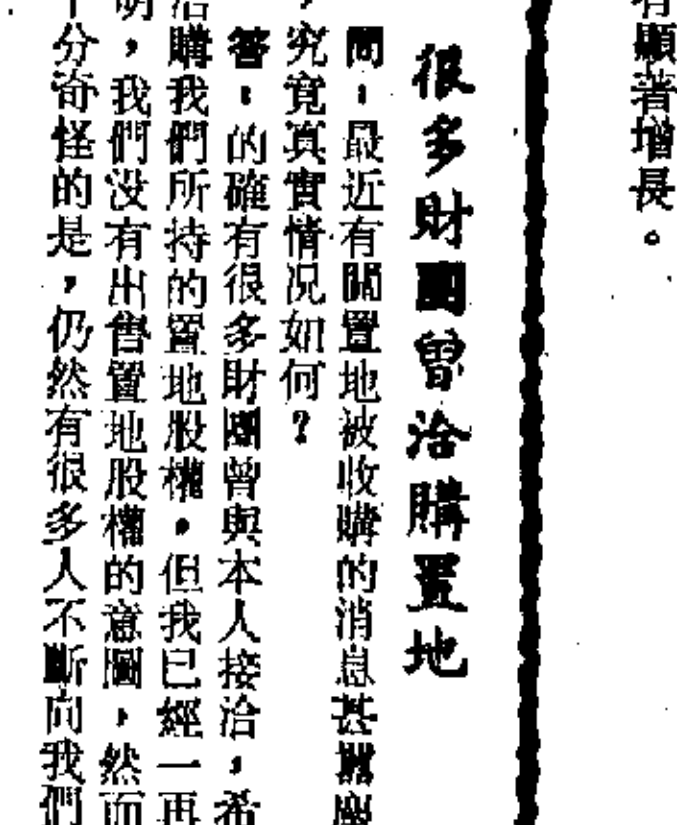 有顯著增長。
很多財團曾洽購置地
問：最近有關置地被收購的消息甚囂塵
，究竟真實情況如何？
答：的確有很多財團曾與本人接洽，希
洽購我們所持的置地股權。但我已經一再
明，我們没有出售置地股權的意圖，然而
十分奇怪的是，仍然有很多人不斷向我們